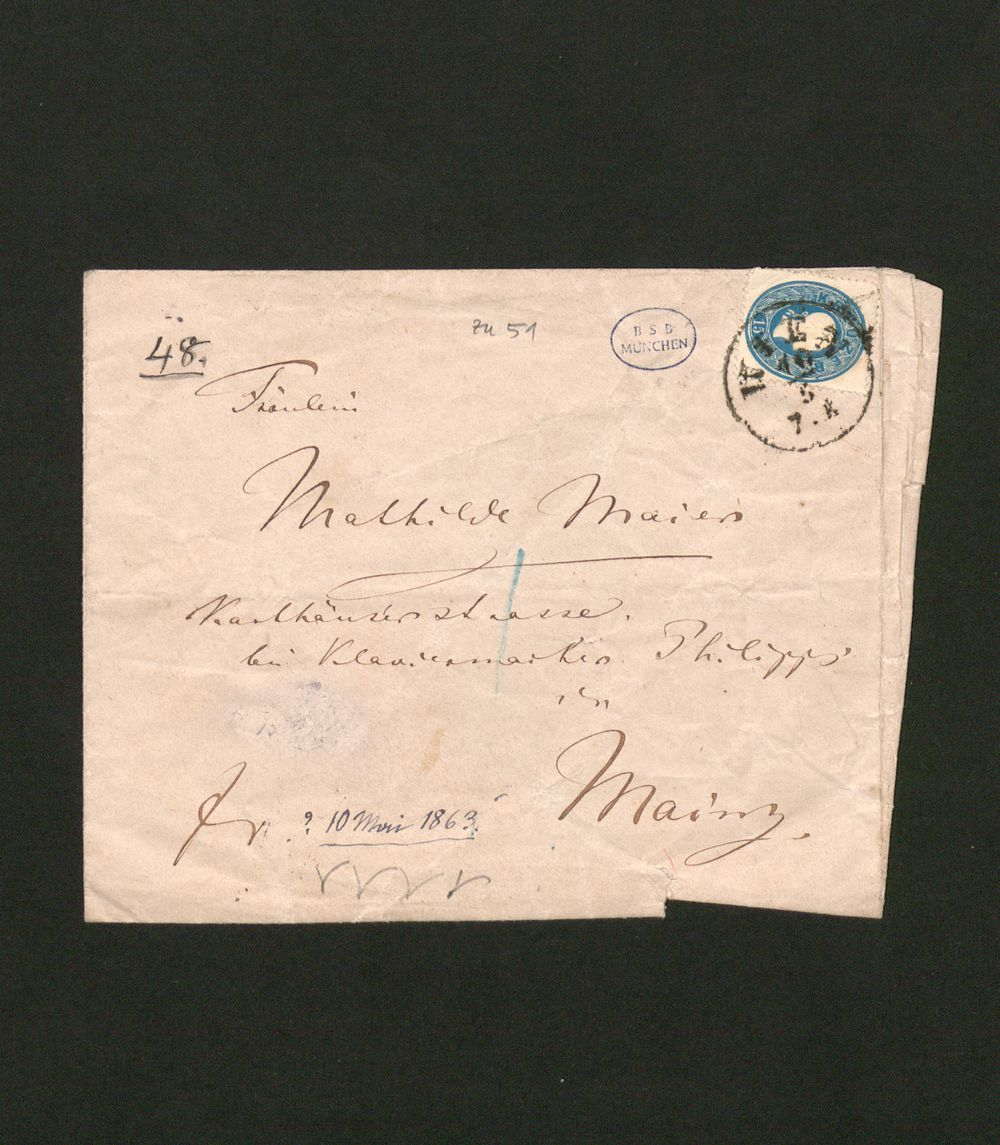 48.
zu 51
B S B
MÜNCHEN
15
Fräulein
Mathilde Maier
Karthäuserstrasse.
bei Klaviermacher Philipps
in
Mainz.
fr.
? 10 Mai 1863.